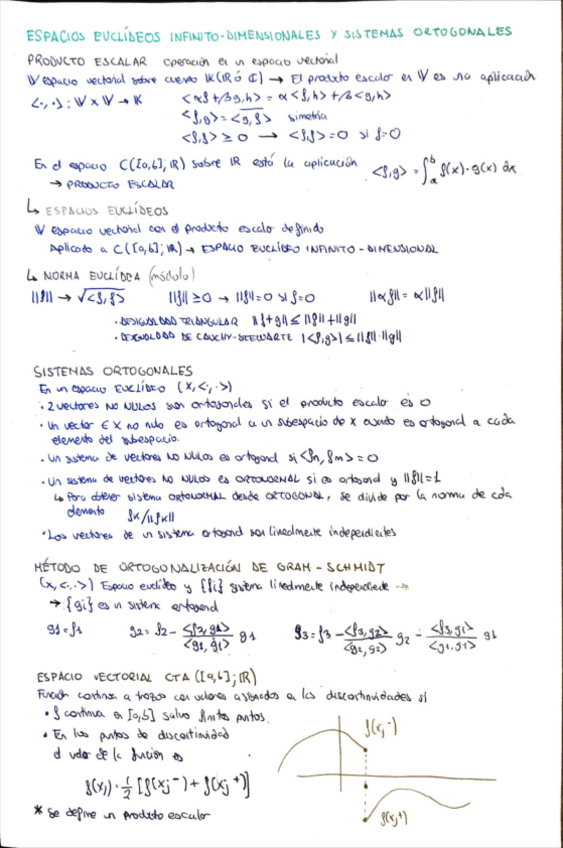 ESPACIOS EUCLÍDEOS INFINITO-DIMENSIONALES Y SISTEMAS ORTOGONALES
PRODUCTO ESCALAR operación en un espacio vectorial
V espacio vectorial sobre cuerpo K (R ó C) → El producto escalar en V es una aplicación
<·,·> : V × V → K <αf + βg, h> = α<f, h> + β<g, h>
<f, g> = <g, f> simetría
<f, f> ≥ 0 → <f, f> = 0 si f=0
En el espacio C([a,b]; R) sobre R está la aplicación <f, g> = ∫ₐᵇ f(x)·g(x) dx
→ PRODUCTO ESCALAR
↳ ESPACIOS EUCLÍDEOS
V espacio vectorial con el producto escalar definido
Aplicado a C([a,b]; R) → ESPACIO EUCLÍDEO INFINITO-DIMENSIONAL
↳ NORMA EUCLÍDEA (módulo)
||f|| → √<f, f> ||f|| ≥ 0 → ||f|| = 0 si f=0 ||αf|| = α||f||
· DESIGUALDAD TRIANGULAR ||f+g|| ≤ ||f|| + ||g||
· DESIGUALDAD DE CAUCHY-SCHWARTZ |<f, g>| ≤ ||f||·||g||
SISTEMAS ORTOGONALES
En un espacio EUCLÍDEO (X, <·,·>)
· 2 vectores NO NULOS son ortogonales si el producto escalar es 0
· Un vector ∈ X no nulo es ortogonal a un subespacio de X cuando es ortogonal a cada
elemento del subespacio.
· Un sistema de vectores NO NULOS es ortogonal si <fn, fm> = 0
· Un sistema de vectores NO NULOS es ORTONORMAL si es ortogonal y ||f||=1
↳ Para obtener sistema ORTONORMAL desde ORTOGONAL, se divide por la norma de cada
elemento fk/||fk||
· Los vectores de un sistema ortogonal son linealmente independientes
MÉTODO DE ORTOGONALIZACIÓN DE GRAM-SCHMIDT
(X, <·,·>) Espacio euclídeo y {fi} sistema linealmente independiente →
→ {gi} es un sistema ortogonal
g1 = f1 g2 = f2 - <f2, g1>/<g1, g1> g1 g3 = f3 - <f3, g2>/<g2, g2> g2 - <f3, g1>/<g1, g1> g1
ESPACIO VECTORIAL CTA ([a,b]; R)
Función continua a trozos con valores asociados a las discontinuidades si
· f continua en [a,b] salvo finitos puntos.
· En los puntos de discontinuidad
el valor de la función es
f(xj) = 1/2 [f(xj⁻) + f(xj⁺)]
* Se define un producto escalar
f(xj⁻)
f(xj⁺)